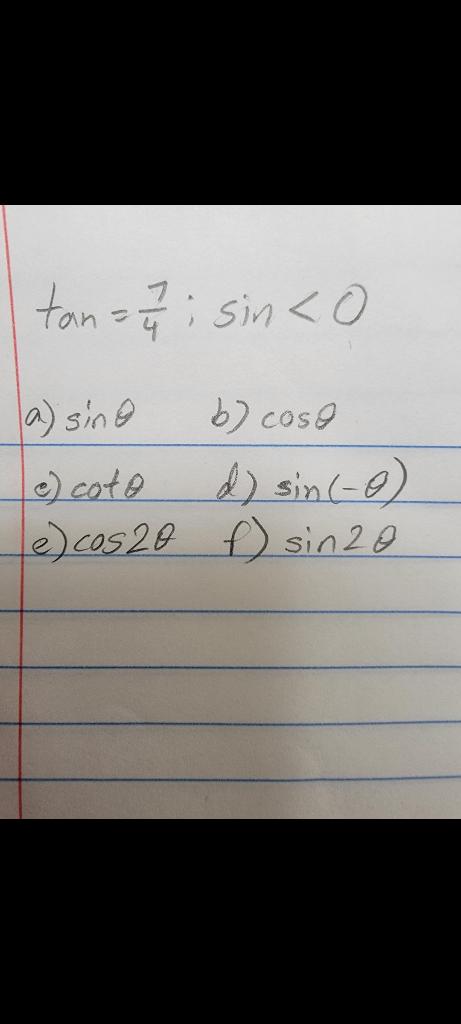 tan = 7/4 ; sin < 0
a) sinθ b) cosθ
c) cotθ d) sin(-θ)
e) cos2θ f) sin2θ